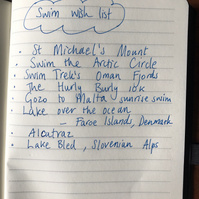 Swim wish list
• St Michael's Mount
• Swim the Arctic Circle
• Swim Trek's Oman Fjords
• The Hurly Burly 10k
• Gozo to Malta sunrise swim
• Lake over the ocean
– Faroe Islands, Denmark
• Alcatraz
• Lake Bled, Slovenian Alps